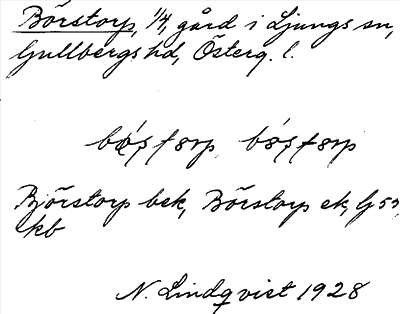 Börstorp, 1/4, gård i Ljungs sn,
Gullbergs hd, Österg. l.
Bjõrstorp bek, Börstorp ek, G 57,
kb
N. Lindqvist 1928